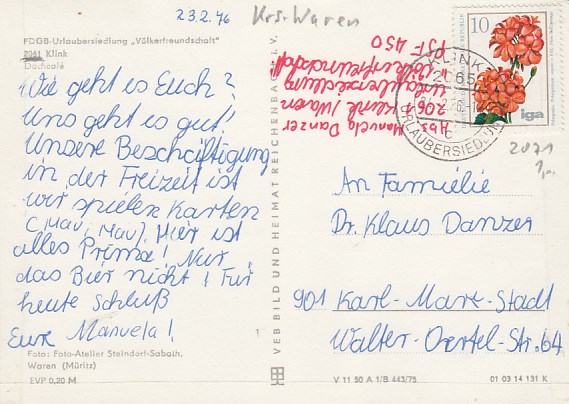 23.2.76 Krs. Waren
FDGB-Urlaubersiedlung „Völkerfreundschaft"
2061 Klink
Dachcafé
Wie geht es Euch?
Uns geht es gut!
Unsere Beschäftigung
in der Freizeit ist
wir spielen Karten
(Mau, Mau). Hier ist
alles Prima! Nur
das Bier nicht! Für
heute Schluß
Eure Manuela!
Foto: Foto-Atelier Steindorf-Sabath,
Waren (Müritz)
EVP 0,20 M
VEB BILD UND HEIMAT REICHENBACH i. V.
1
Abs. Manuela Danzer
2064 Klink / Waren
Urlaubersiedlung
Völkerfreundschaft
PSF 450
10
iga
KLINK
2065
URLAUBERSIEDLUNG
2071
1,-
An Familie
Dr. Klaus Danzer
901 Karl-Marx-Stadt
Walter-Oertel-Str. 64
V 11 50 A 1/B 443/75
01 03 14 131 K